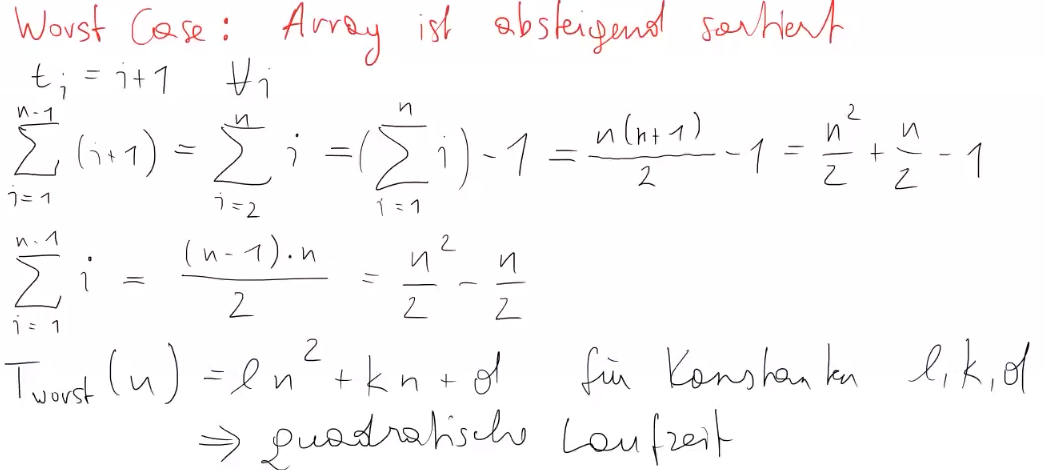 Worst Case: Array ist absteigend sortiert
t_i = i+1 ∀i
∑_{i=1}^{n-1} (i+1) = ∑_{i=2}^{n} i = (∑_{i=1}^{n} i) - 1 = n(n+1)/2 - 1 = n²/2 + n/2 - 1
∑_{i=1}^{n-1} i = (n-1)·n/2 = n²/2 - n/2
T_worst(n) = ln² + kn + d für Konstanten l, k, d
⇒ quadratische Laufzeit